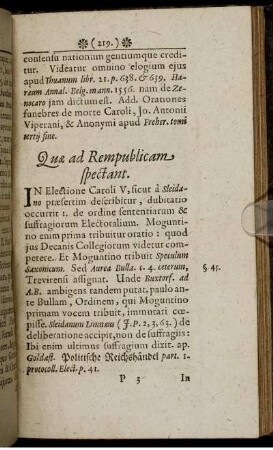 ❋ (219.) ❋
consensu nationum gentiumque credi-
tur. Videatur omnino elogium ejus
apud Thuanum libr. 21. p. 638. & 639. Ha-
ræum Annal. Belg. mann. 1556. nam de Ze-
nocaro jam dictum est. Add. Orationes
funebres de morte Caroli, Jo. Antonii
Viperani, & Anonymi apud Freher. tomi
tertij fine.
Quæ ad Rempublicam
spectant.
IN Electione Caroli V, sicut à Sleida-
no præsertim describitur, dubitatio
occurrit 1. de ordine sententiarum &
suffragiorum Electoralium. Mogunti-
no enim prima tribuitur oratio: quod
jus Decanis Collegiorum videtur com-
petere. Et Moguntino tribuit Speculum
Saxonicum. Sed Aurea Bulla. c. 4. ceterum,
§ 45.
Trevirensi assignat. Unde Buxtorf. ad
A.B. ambigens tandem putat, paulo an-
te Bullam, Ordinem, qui Moguntino
primam vocem tribuit, immutari cœ-
pisse. Sleidanum Limnæus (J.P. 2, 3, 63.) de
deliberatione accipit, non de suffragiis:
Ibi enim ultimus suffragium dixit. ap.
Goldast. Politische Reichshändel part. 1.
protocoll. Elect. p. 41.
P 3 In